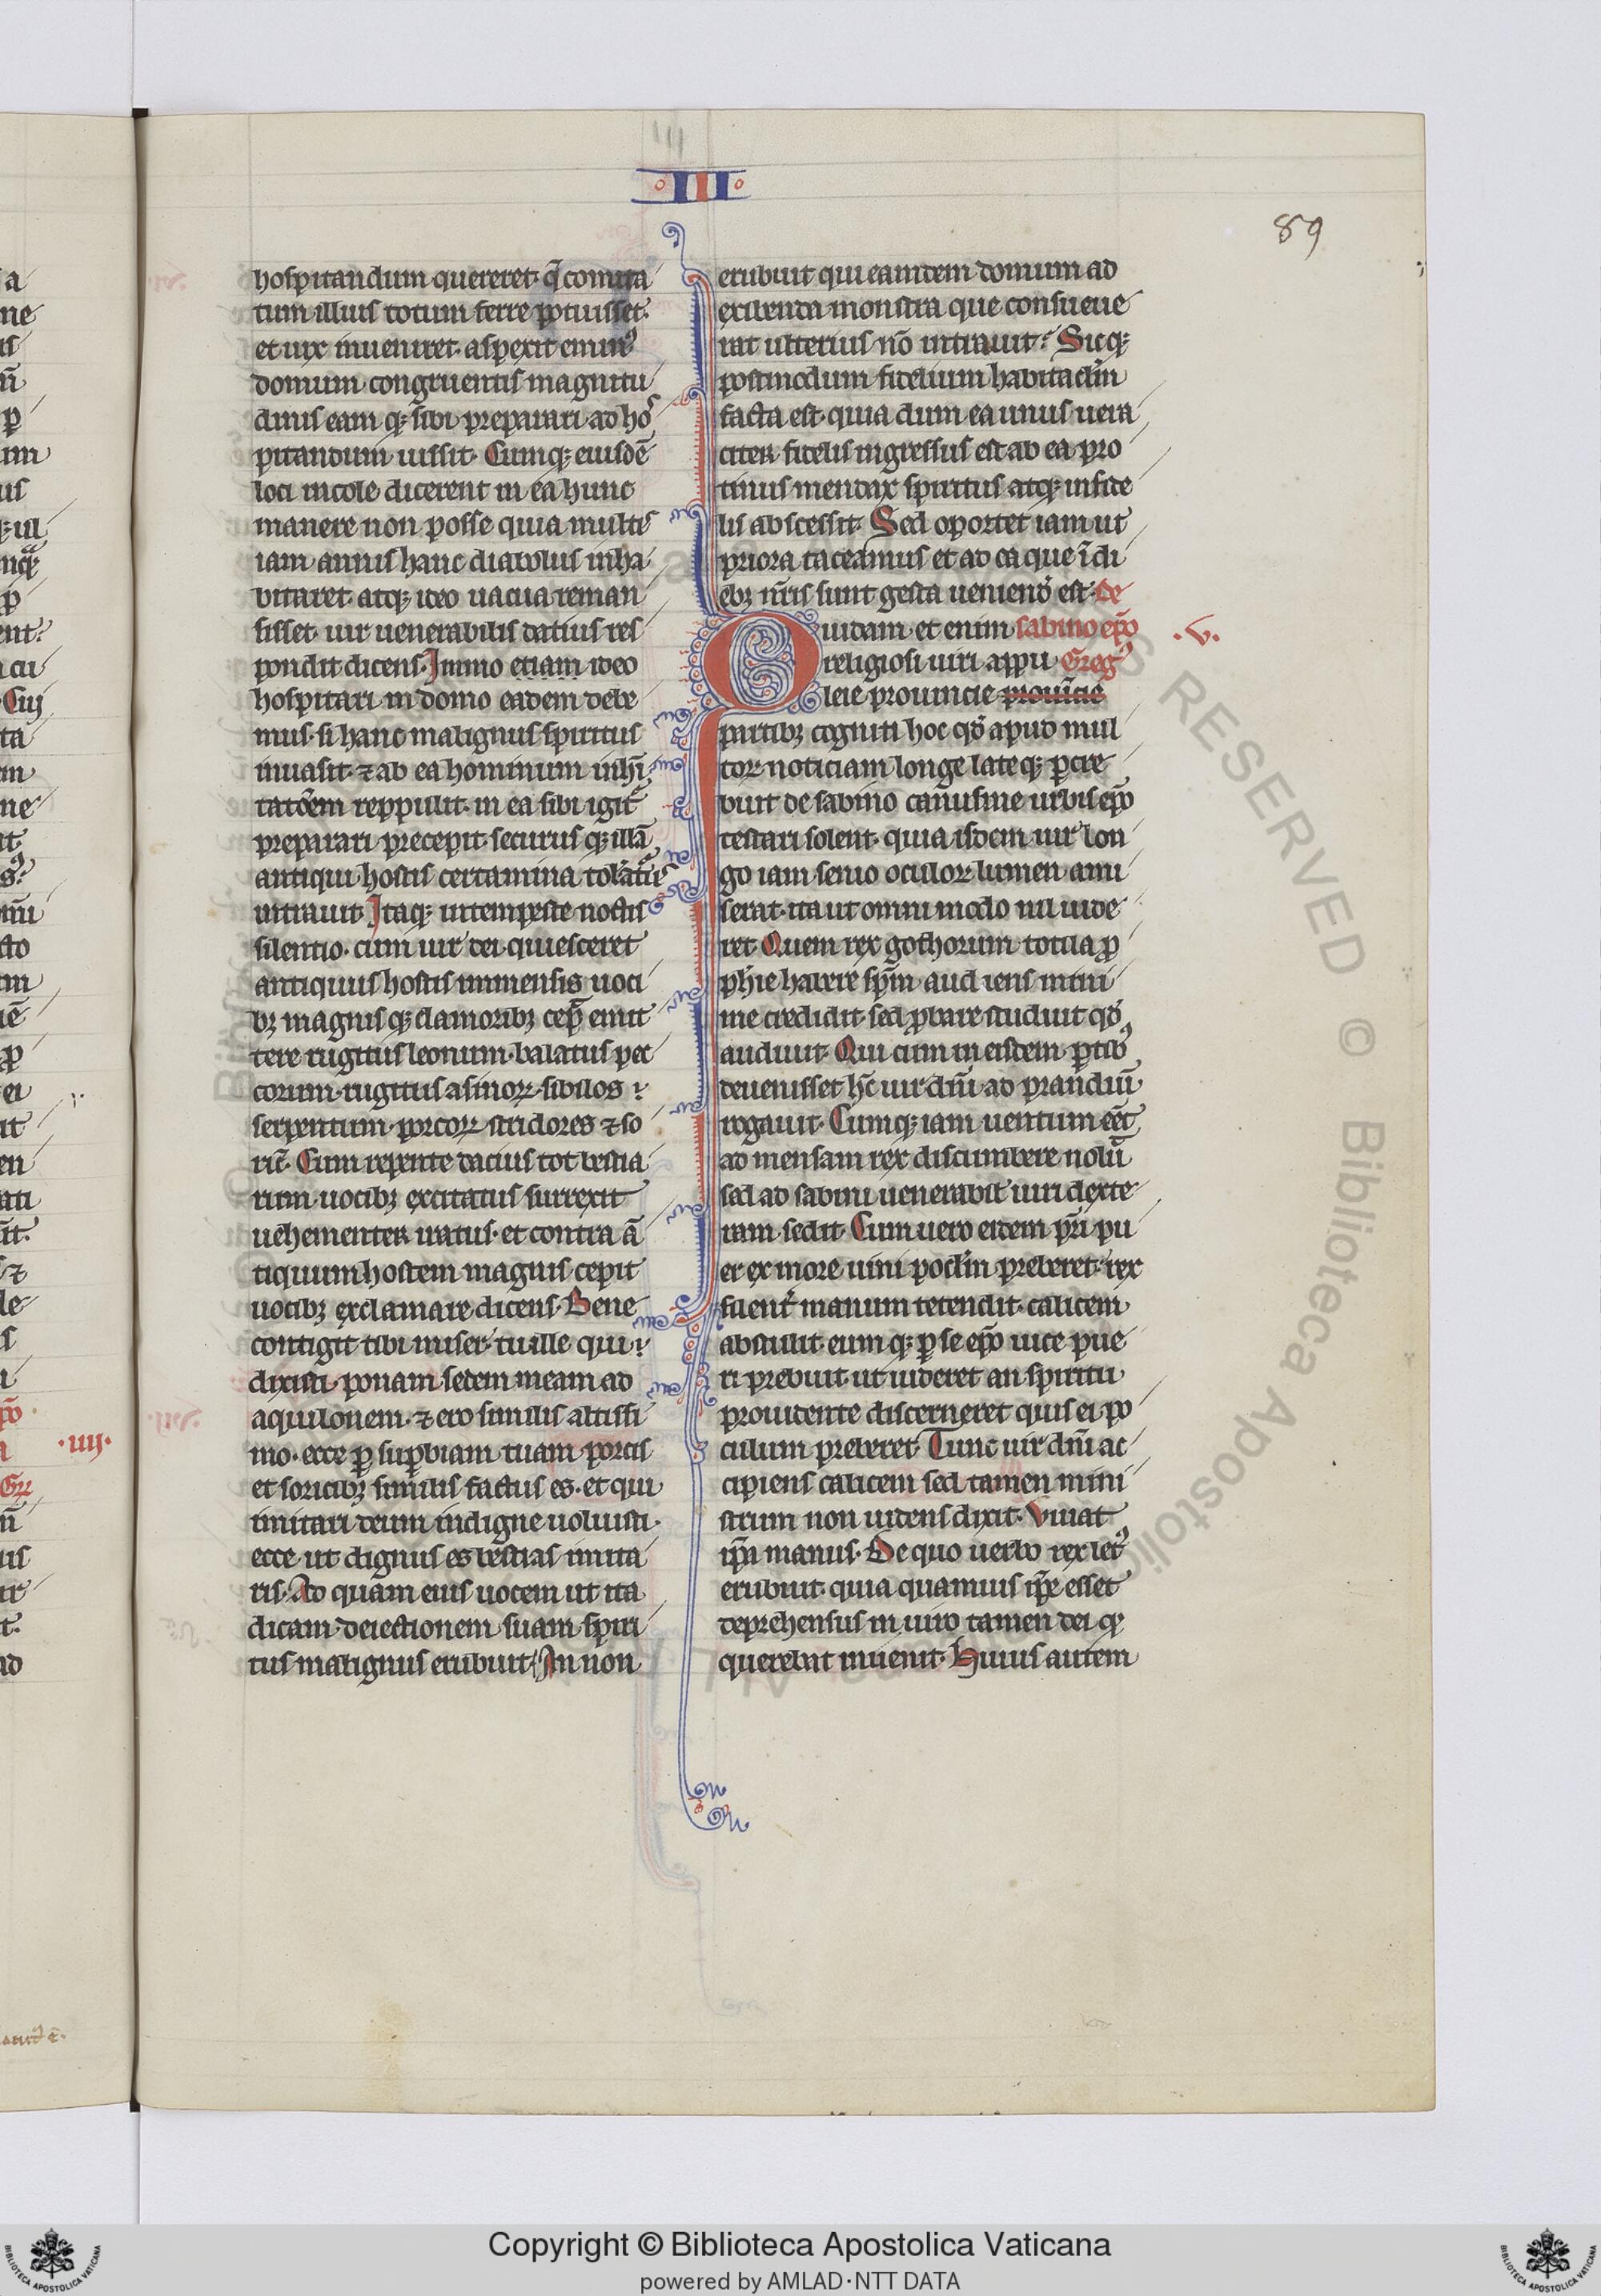 III
89
hospitandum quereret· q̄ comita
tum illius totum ferre potuisset·
et uix inueniret· aspexit emin᷒
domum congruentis magnitu
dinis eam q; sibi preparari ad hos
pitandum iussit· Cumq; eiusdē
loci incole dicerent in ea hunc
manere non posse quia multis
iam annis hanc diabolus inha
bitaret· atq; ideo uacua reman
sisset· uir uenerabilis datius res
pondit dicens· Immo etiam ideo
hospitari in domo eadem debe
mus· si hanc malignus spiritus
inuasit· ⁊ ab ea hominum inhi
tatōem reppulit· in ea sibi igit᷑
preparari precepit· securus q; illā
antiqui hostis certamina tolat᷑us
intrauit· Itaq; intempeste noctis
silentio· cum uir dei quiesceret
antiquus hostis immensis uoci
bꝫ magnis q; clamoribꝫ cep̄ emit
tere rugitus leonum· balatus pec
corum· rugitus asinoꝝ· sibilos
serpentum· porcoꝝ stridores ⁊ so
ric̄· Cum repente dacius tot bestia
rum uocibꝫ excitatus surrexit
uehementer iratus· et contra ā
tiquum hostem magnis cepit
uocibꝫ exclamare dicens· Bene
contigit tibi miser· tu ille qui
dixisti· ponam sedem meam ad
aquilonem· ⁊ ero similis altissi
mo· ecce ꝑ suꝑbiam tuam porcis
et soricibꝫ similis factus es· et qui
imitari deum indigne uoluisti·
ecce ut dignus es bestias imita
ris· Ad quam eius uocem ut ita
dicam· deiectionem suam spiri
tus malignus erubuit· An non
erubuit qui eamdem domum ad
exibenda monstra que consueue
rat ulterius nō intrauit? Sicq;
postmodum fidelium habitaclm̄
facta est· quia dum ea unus uera
citer fidelis ingressus est· ab ea pro
tinus mendax spiritus atq; infide
lis abscessit· Sed oportet iam ut
priora taceamus et ad ea que ī di
ebꝫ nr̄is sunt gesta ueniend̄ est· de
Quidam et enim sabino ep̄o
religiosi uiri appu Greg᷒
leie prouincie prouīcie
·v·
partibꝫ cogniti hoc qd̄ apud mul
toꝝ noticiam longe lateq; ꝑcre
buit de sabino canusine urbis ep̄o
testari solent· quia isdem uir lon
go iam senio oculoꝝ lumen ami
serat· ita ut omni modo nil uide
ret· Quem rex gothorum totila ꝓ
phīe habere sp̄m audiens mini
me credidit· sed ꝓbare studuit qd̄
audiuit· Qui cum in eisdem ꝑtib᷒
deuenisset hc̄ uir dn̄i ad prandiū
rogauit· Cumq; iam uentum eēt
ad mensam rex discumbere nolū
sed ad sabini uenerabil̄ uiri dexte
ram sedit· Cum uero eidem pr̄i pu
er ex more uini poclm̄ preberet· rex
silent᷑ manum tetendit· calicem
abstulit eum q; ꝑ se ep̄o uice pue
ri prebuit· ut uideret an spiritu
prouidente discerneret quis ei po
culum preberet· Tunc uir dn̄i ac
cipiens calicem sed tamen mini
strum non uidens dixit· Viuat
ip̄a manus· De quo uerbo rex let᷒
erubuit· quia quamuis ip̄e esset
deprehensus in uiro tamen dei q̄
querebat inuenit· Huius autem
·iiij·
Copyright © Biblioteca Apostolica Vaticana
powered by AMLAD·NTT DATA